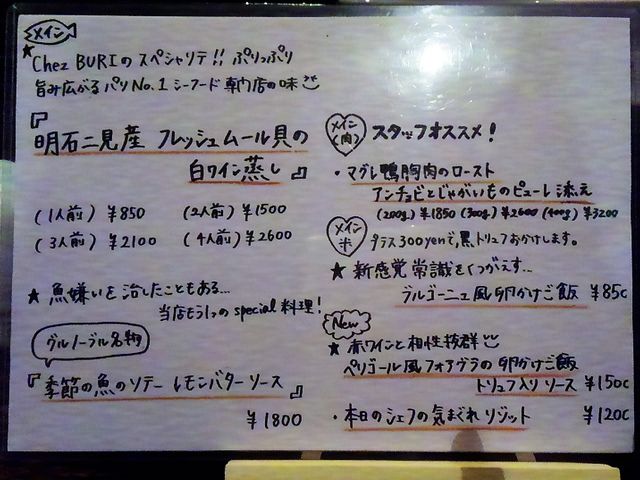 メイン
★ Chez BURIの スペシャリテ!! ぷりっぷり
旨み広がる パリNo.1 シーフード専門店の味
『明石二見産 フレッシュムール貝の
白ワイン蒸し』
(1人前) ¥850 (2人前) ¥1500
(3人前) ¥2100 (4人前) ¥2600
★ 魚嫌いを治したこともある...
当店もう1つの special 料理!
グルノーブル名物
『季節の魚のソテー レモンバターソース』
¥1800
メイン(肉) スタッフオススメ!
・マグレ鴨胸肉のロースト
アンチョビとじゃがいものピューレ添え
(200g) ¥1850 (300g) ¥2600 (400g) ¥3200
メイン 米 プラス300yenで、黒トリュフおかけします。
★ 新感覚 常識をくつがえす...
ブルゴーニュ風 卵かけご飯 ¥850
New
★ 赤ワインと相性抜群
ペリゴール風 フォアグラの卵かけご飯
トリュフ入りソース ¥1500
・本日のシェフの気まぐれリゾット ¥1200